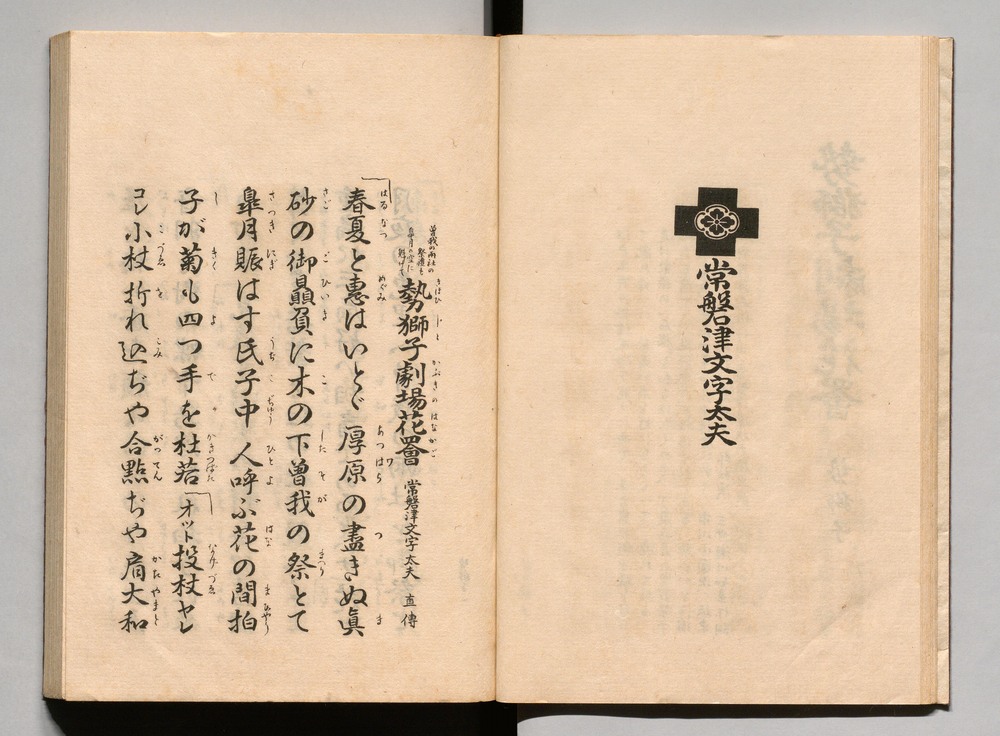 常磐津文字太夫
曽我の両社の
祭禮を
皐月の空に
魁けて
勢獅子劇場花罾　常磐津文字太夫　直傳
春夏と惠はいとゞ厚原の盡きぬ眞
砂の御贔負に木の下曽我の祭とて
皐月賑はす氏子中人呼ぶ花の間拍
子が菊も四つ手を杜若オット投杖ヤレ
コレ小杖折れ込ぢや合點ぢや肩大和